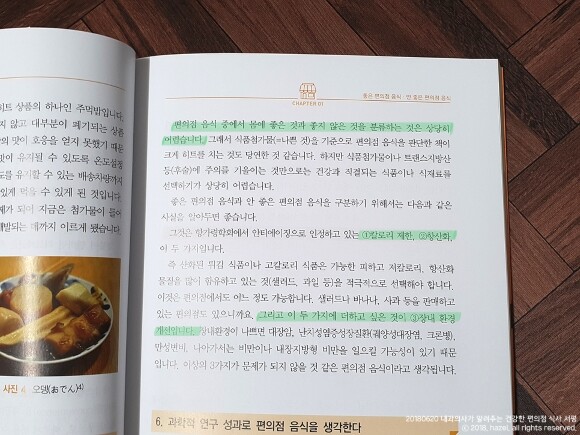 히트 상품의 하나인 주먹밥입니다.
지 않고 대부분이 폐기되는 상품
의 맛이 호응을 얻지 못했기 때문
맛이 유지될 수 있도록 온도설정
도를 유지할 수 있는 배송차량까지
있게 먹을 수 있게 된 것입니다.
제가 되어 지금은 첨가물이 들어
개발되는 데까지 이르게 됐습니다.
사진 4 오뎅(おでん)4)
CHAPTER 01
좋은 편의점 음식·안 좋은 편의점 음식
편의점 음식 중에서 몸에 좋은 것과 좋지 않은 것을 분류하는 것은 상당히
어렵습니다. 그래서 식품첨가물(=나쁜 것)을 기준으로 편의점을 판단한 책이
크게 히트를 치는 것도 당연한 것 같습니다. 하지만 식품첨가물이나 트랜스지방산
등(후술)에 주의를 기울이는 것만으로는 건강과 직결되는 식품이나 식재료를
선택하기가 상당히 어렵습니다.
좋은 편의점 음식과 안 좋은 편의점 음식을 구분하기 위해서는 다음과 같은
사실을 알아두면 좋습니다.
그것은 항가령학회에서 안티에이징으로 인정하고 있는 ①칼로리 제한, ②항산화,
이 두 가지입니다.
즉 산화된 튀김 식품이나 고칼로리 식품은 가능한 피하고 저칼로리, 항산화
물질을 많이 함유하고 있는 것(샐러드, 과일 등)을 적극적으로 선택해야 합니다.
이것은 편의점에서도 어느 정도 가능합니다. 샐러드나 바나나, 사과 등을 판매하고
있는 편의점도 있으니까요. 그리고 이 두 가지에 더하고 싶은 것이 ③장내 환경
개선입니다. 장내환경이 나쁘면 대장암, 난치성염증성장질환(궤양성대장염, 크론병),
만성변비, 나아가서는 비만이나 내장지방형 비만을 일으킬 가능성이 있기 때문
입니다. 이상의 3가지가 문제가 되지 않을 것 같은 편의점 음식이라고 생각됩니다.
6. 과학적 연구 성과로 편의점 음식을 생각한다
20180620 내과의사가 알려주는 건강한 편의점 식사 서평
ⓒ 2018. hazel. all rights reserved.